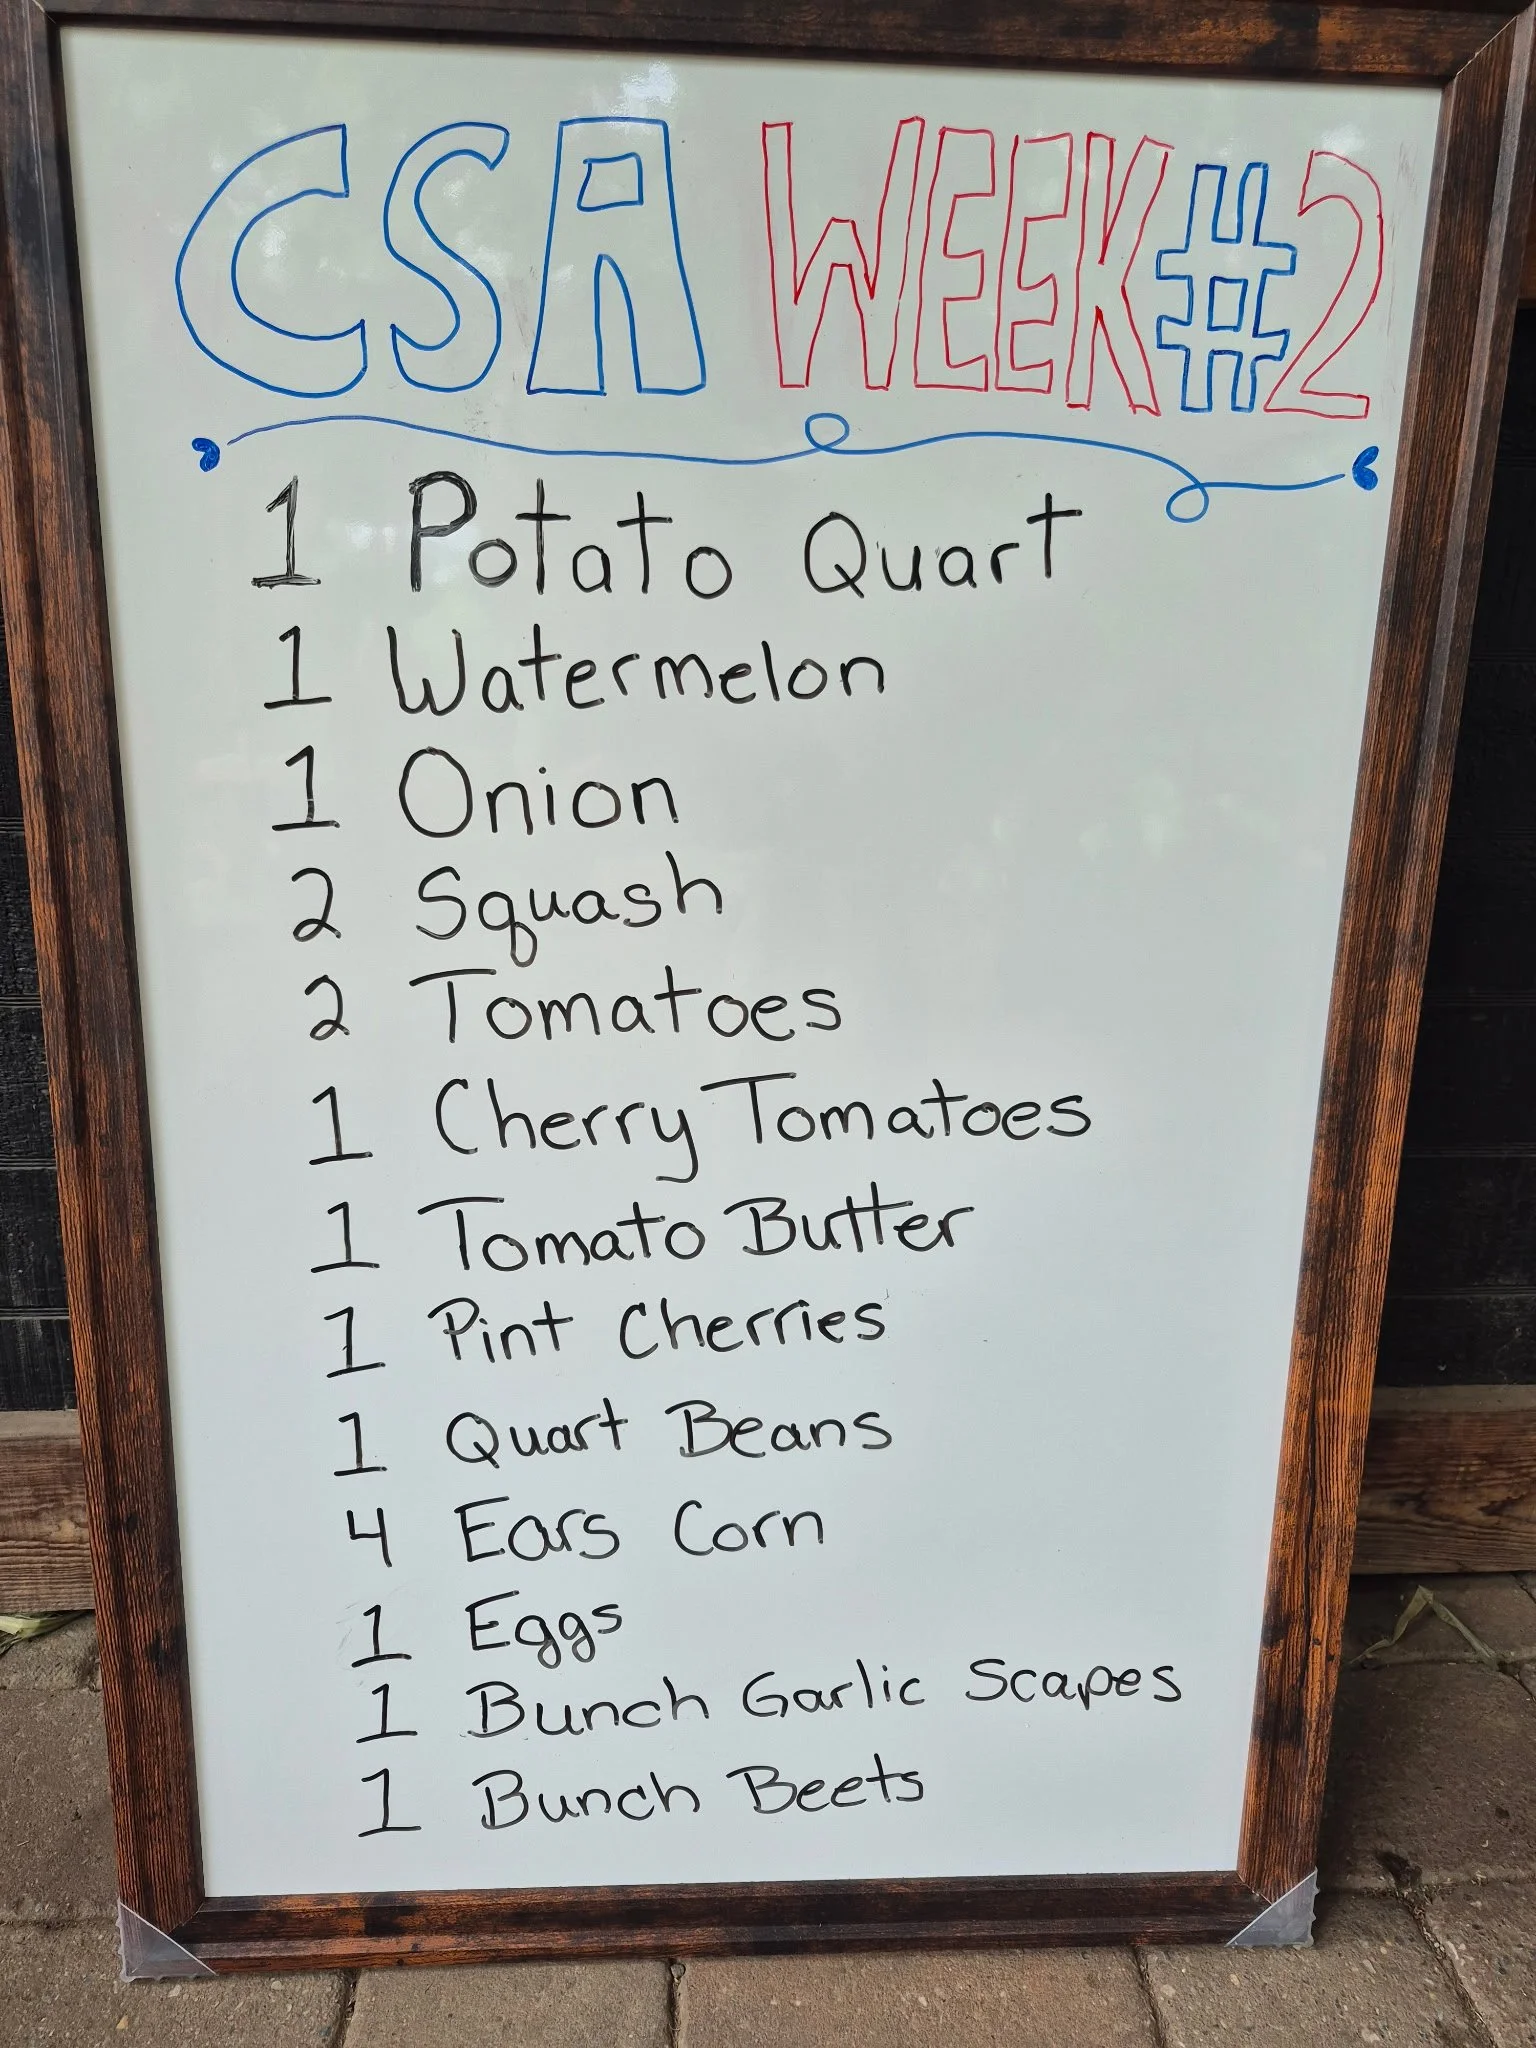 CSA WEEK #2
1 Potato Quart
1 Watermelon
1 Onion
2 Squash
2 Tomatoes
1 Cherry Tomatoes
1 Tomato Butter
1 Pint Cherries
1 Quart Beans
4 Ears Corn
1 Eggs
1 Bunch Garlic Scapes
1 Bunch Beets